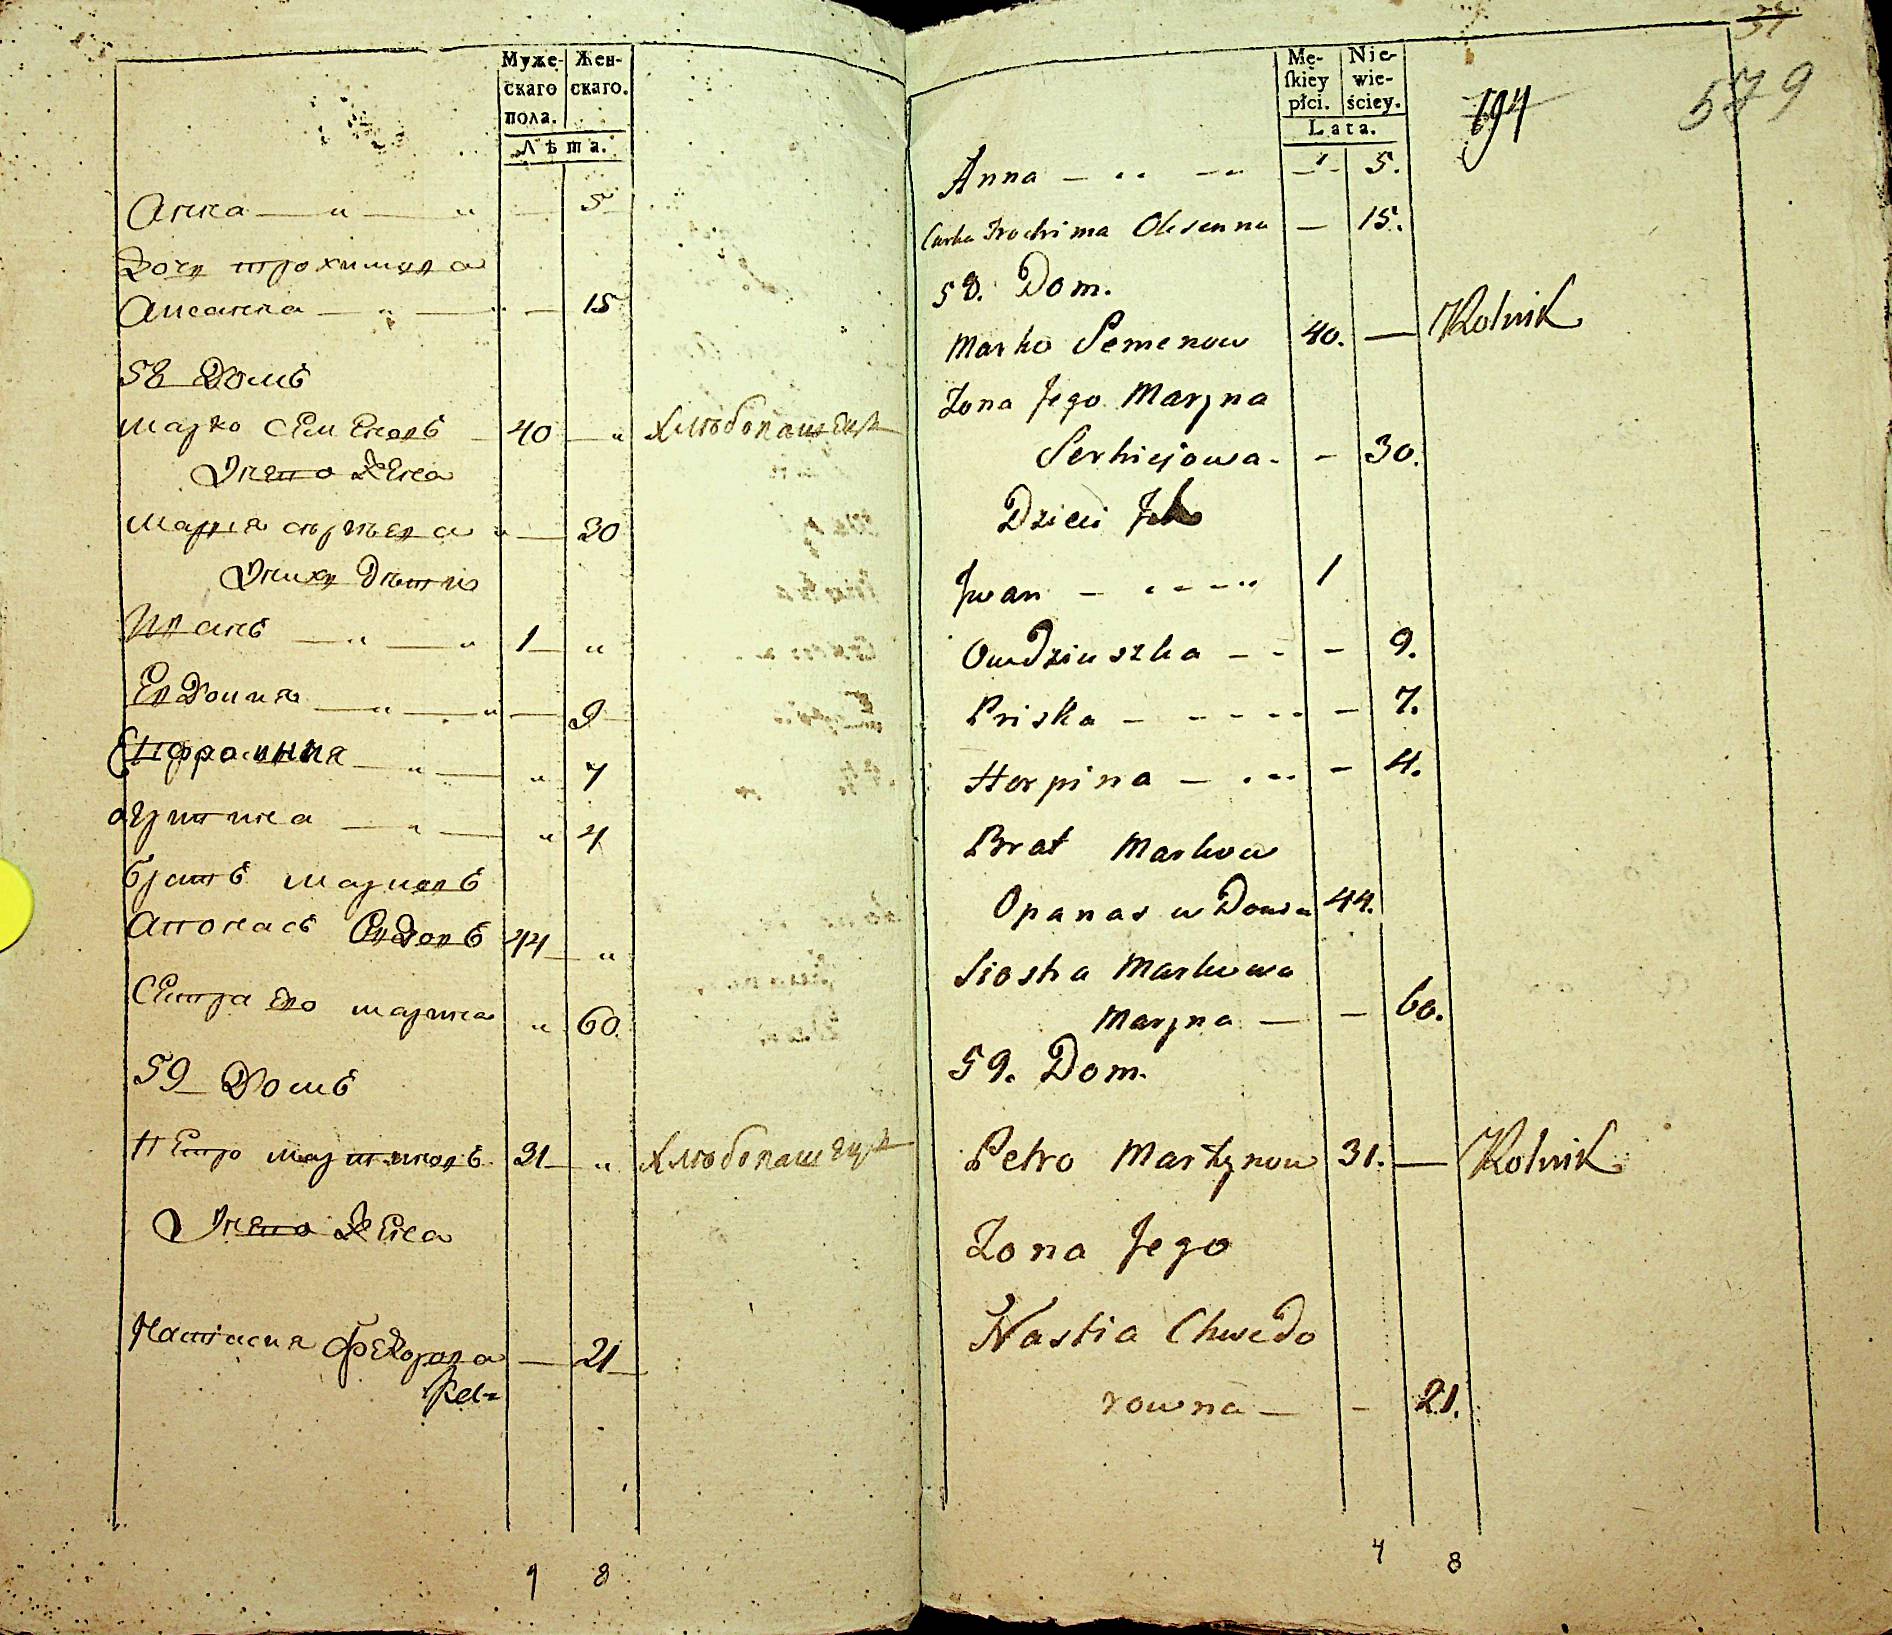 Муже- Жен-
скаго скаго.
пола.
Лѣта.
Анна — „ — „ — 5
Дочь трохимова
Аксанна — „ — „ — 15
58 Домъ
марко Семеновъ — 40 — „ хлѣбопашецъ
У него Жена
мария сергѣева „ — 30
У нихъ дѣти
Иванъ — „ — „ 1 — „
Евдокия — „ — „ — 9
Епфросиния — „ — „ 7
агрипина — „ — „ 4
братъ марковъ
Апонасъ Вдовъ 44 — „
Сестра его марина „ 60
59 Домъ
Петро мартиновъ 31 — „ хлѣбопашецъ
У него Жена
Настасия Федорова — 21
4 8
37
579
194
Mę- Nie-
ſkiey wie-
płci. ściey.
Lata.
Anna — .. — .. — 5.
Curka Trochima Oksanna — 15.
58. Dom.
Marko Semenow 40. — Rolnik
Zona Jego Maryna
Serhiejowa - - 30.
Dzieci Ich
Jwan - - - - - 1
Owdziuszka - - - 9.
Priska - - - - - - 7.
Horpina - - - - - 4.
Brat Markow
Opanas wDowa 44.
Siostra Markowa
Maryna — — 60.
59. Dom.
Petro Martynow 31. — Rolnik
Zona Jego
Nastia Chwedo
rowna — - 21.
4 8